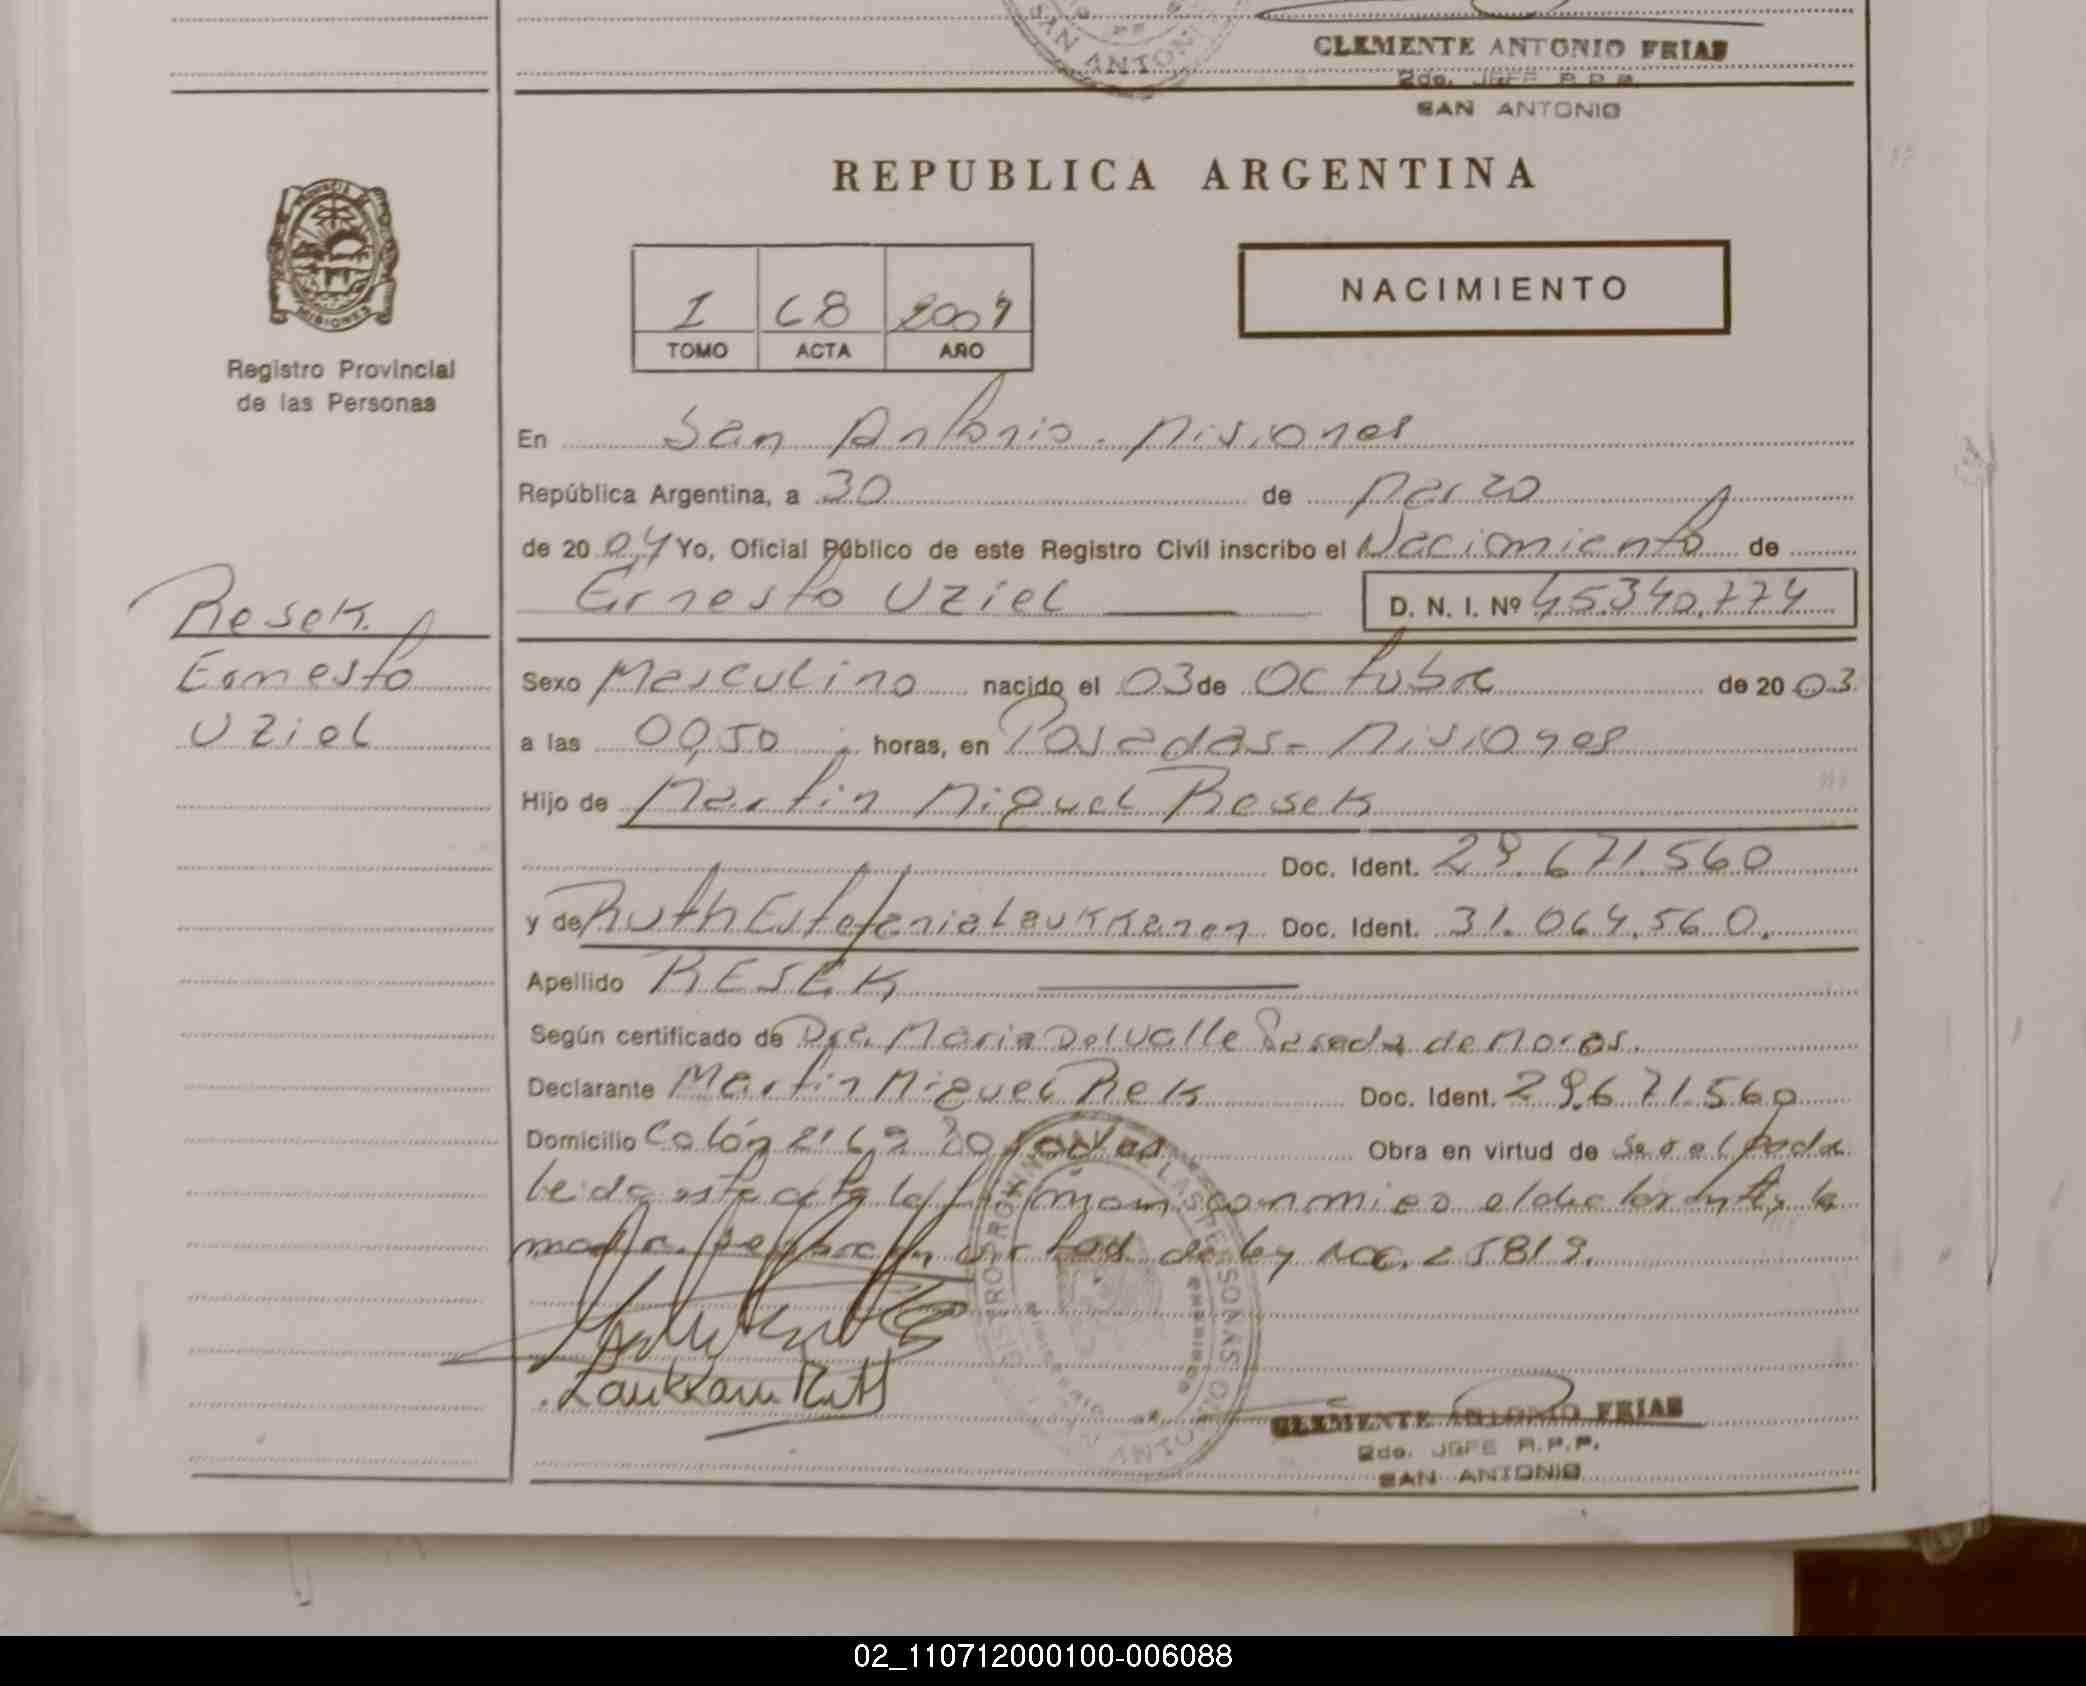 SAN ANTONIO
CLEMENTE ANTONIO FRIAS
2do. JEFE R.P.P.
SAN ANTONIO
REPUBLICA ARGENTINA
PROVINCIA
MISIONES
I 68 2004
TOMO ACTA AÑO
NACIMIENTO
Registro Provincial
de las Personas
En San Antonio - Misiones
República Argentina, a 30 de Marzo
de 20 04 Yo, Oficial Público de este Registro Civil inscribo el Nacimiento de
Ernesto Uziel D. N. I. Nº 45.340.774
Resek
Ernesto
Uziel
Sexo Masculino nacido el 03 de Octubre de 20 03
a las 00,50 horas, en Posadas - Misiones
Hijo de Martin Miguel Resek
Doc. Ident. 29.671.560
y de Ruth Estefania Laukkanen Doc. Ident. 31.064.560.
Apellido RESEK
Según certificado de Dra. Maria Del Valle de Moros.
Declarante Martin Miguel Rek Doc. Ident. 29.671.560
Domicilio Colón 2162 Posadas Obra en virtud de ser el padre
leida esta acta la firman conmigo el declarante y la
madre virtud de ley nac. 25819.
REGISTRO PROVINCIAL DE LAS PERSONAS
SAN ANTONIO
Laukkanen Ruth
CLEMENTE ANTONIO FRIAS
2do. JEFE R.P.P.
SAN ANTONIO
02_110712000100-006088